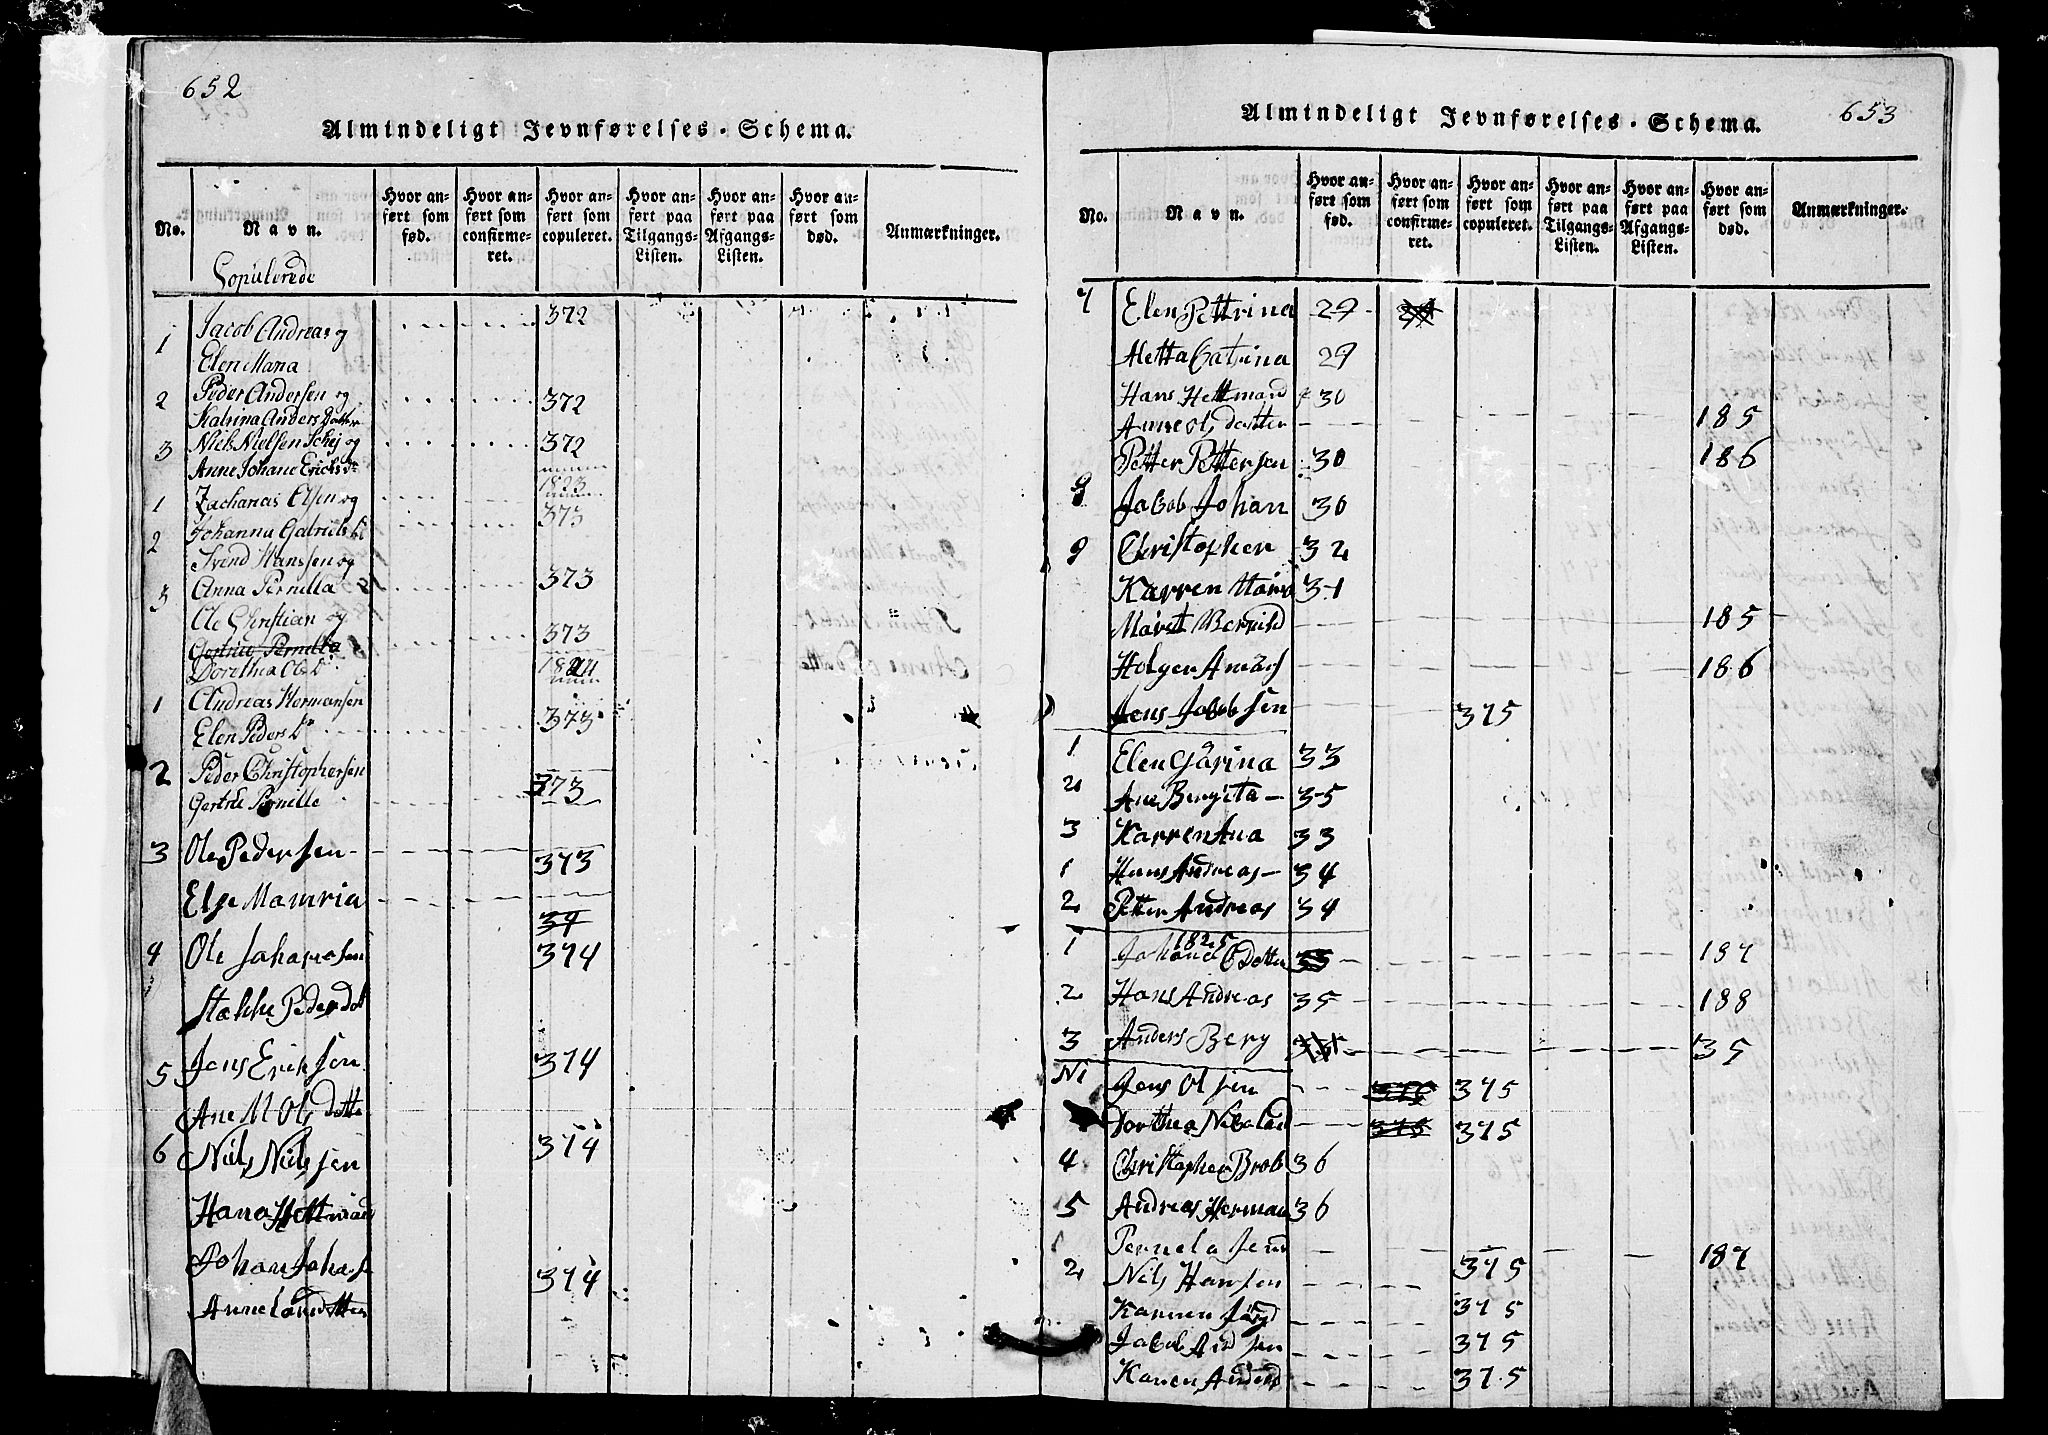 652
Almindeligt Jevnførelses-Schema.
No.
Navn.
Hvor anført som fød.
Hvor anført som confirmeret.
Hvor anført som copuleret.
Hvor anført paa Tilgangs-Listen.
Hvor anført paa Afgangs-Listen.
Hvor anført som død.
Anmærkninger.
Copulerede
1 Jacob Andreas og 372
Elen Maria
2 Peder Andersen og 372
Katrina Anders Datter
3 Niels Nielsen Schej og 372
Anne Johane Erichs Dr
1823
1 Zacharias Olsen og 373
Johanna Gabriels Dr
2 Svend Hanssen og
Anna Pernilla 373
3 Ole Christian og
Gertrue Pernilla 373
Dorethea Ols Dr 1824
1 Andreas Hermansen
Elen Peders Dr 373
2 Peder Christophersen
Gertrue Pernille 373
3 Ole Pedersen 373
Else Mamria
37
4 Ole Johansen 374
Peders dot
5 Jens Eriksen 374
Ane M Ols datte
6 Nils Nilssen 374
Hana Hettmand
Johan Johans 374
Anne
653
Almindeligt Jevnførelses-Schema.
No.
Navn.
Hvor anført som fød.
Hvor anført som confirmeret.
Hvor anført som copuleret.
Hvor anført paa Tilgangs-Listen.
Hvor anført paa Afgangs-Listen.
Hvor anført som død.
Anmærkninger.
7 Elen Pettrina 29 29
Metta Catrina 29
Hans Hettmand 30
Anne Ols datter 185
Petter Pettersen 30 186
8 Jacob Johan 30
9 Christopher 32
Karren Maria 31
Marit Bernild 185
Holger 186
Jens Jacobsen 375
1 Elen Gårina 33
2 Ane Bergita 35
3 Karren Ana 33
1 Hans Andreas 34
2 Petter Andreas 34
1825
1 Johana Odotter 35 187
2 Hans Andreas 35 188
3 Anders Berg 35 35
N1 Jens Olsen 375 375
Dorthea Nicolai 375 375
4 Christopher Brob 36
5 Andreas Herman 36
1 Pernela Jens 187
2 Nils Hansen 375
Karren 375
Jacob Andsen 375
Karen Anders 375